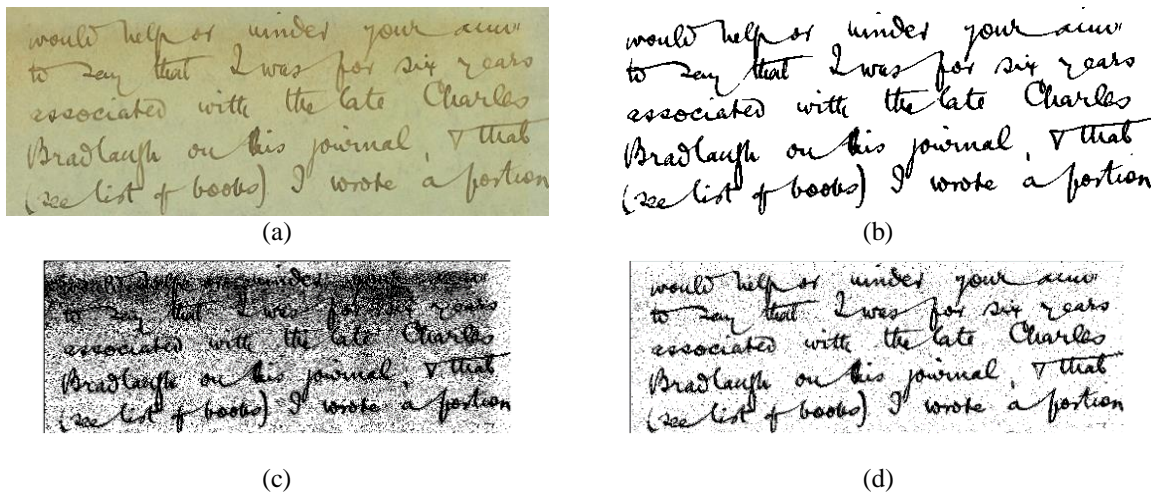 would help or hinder your
to say that I was for six years
associated with the late Charles
Bradlaugh on his journal, & that
(see list of books) I wrote a portion
(a)
would help or hinder your
to say that I was for six years
associated with the late Charles
Bradlaugh on his journal, & that
(see list of books) I wrote a portion
(b)
hinder
to say that I was for six years
associated with the late Charles
Bradlaugh on his journal, & that
(see list of books) I wrote a portion
(c)
would help or hinder your
to say that I was for six years
associated with the late Charles
Bradlaugh on his journal, & that
(see list of books) I wrote a portion
(d)